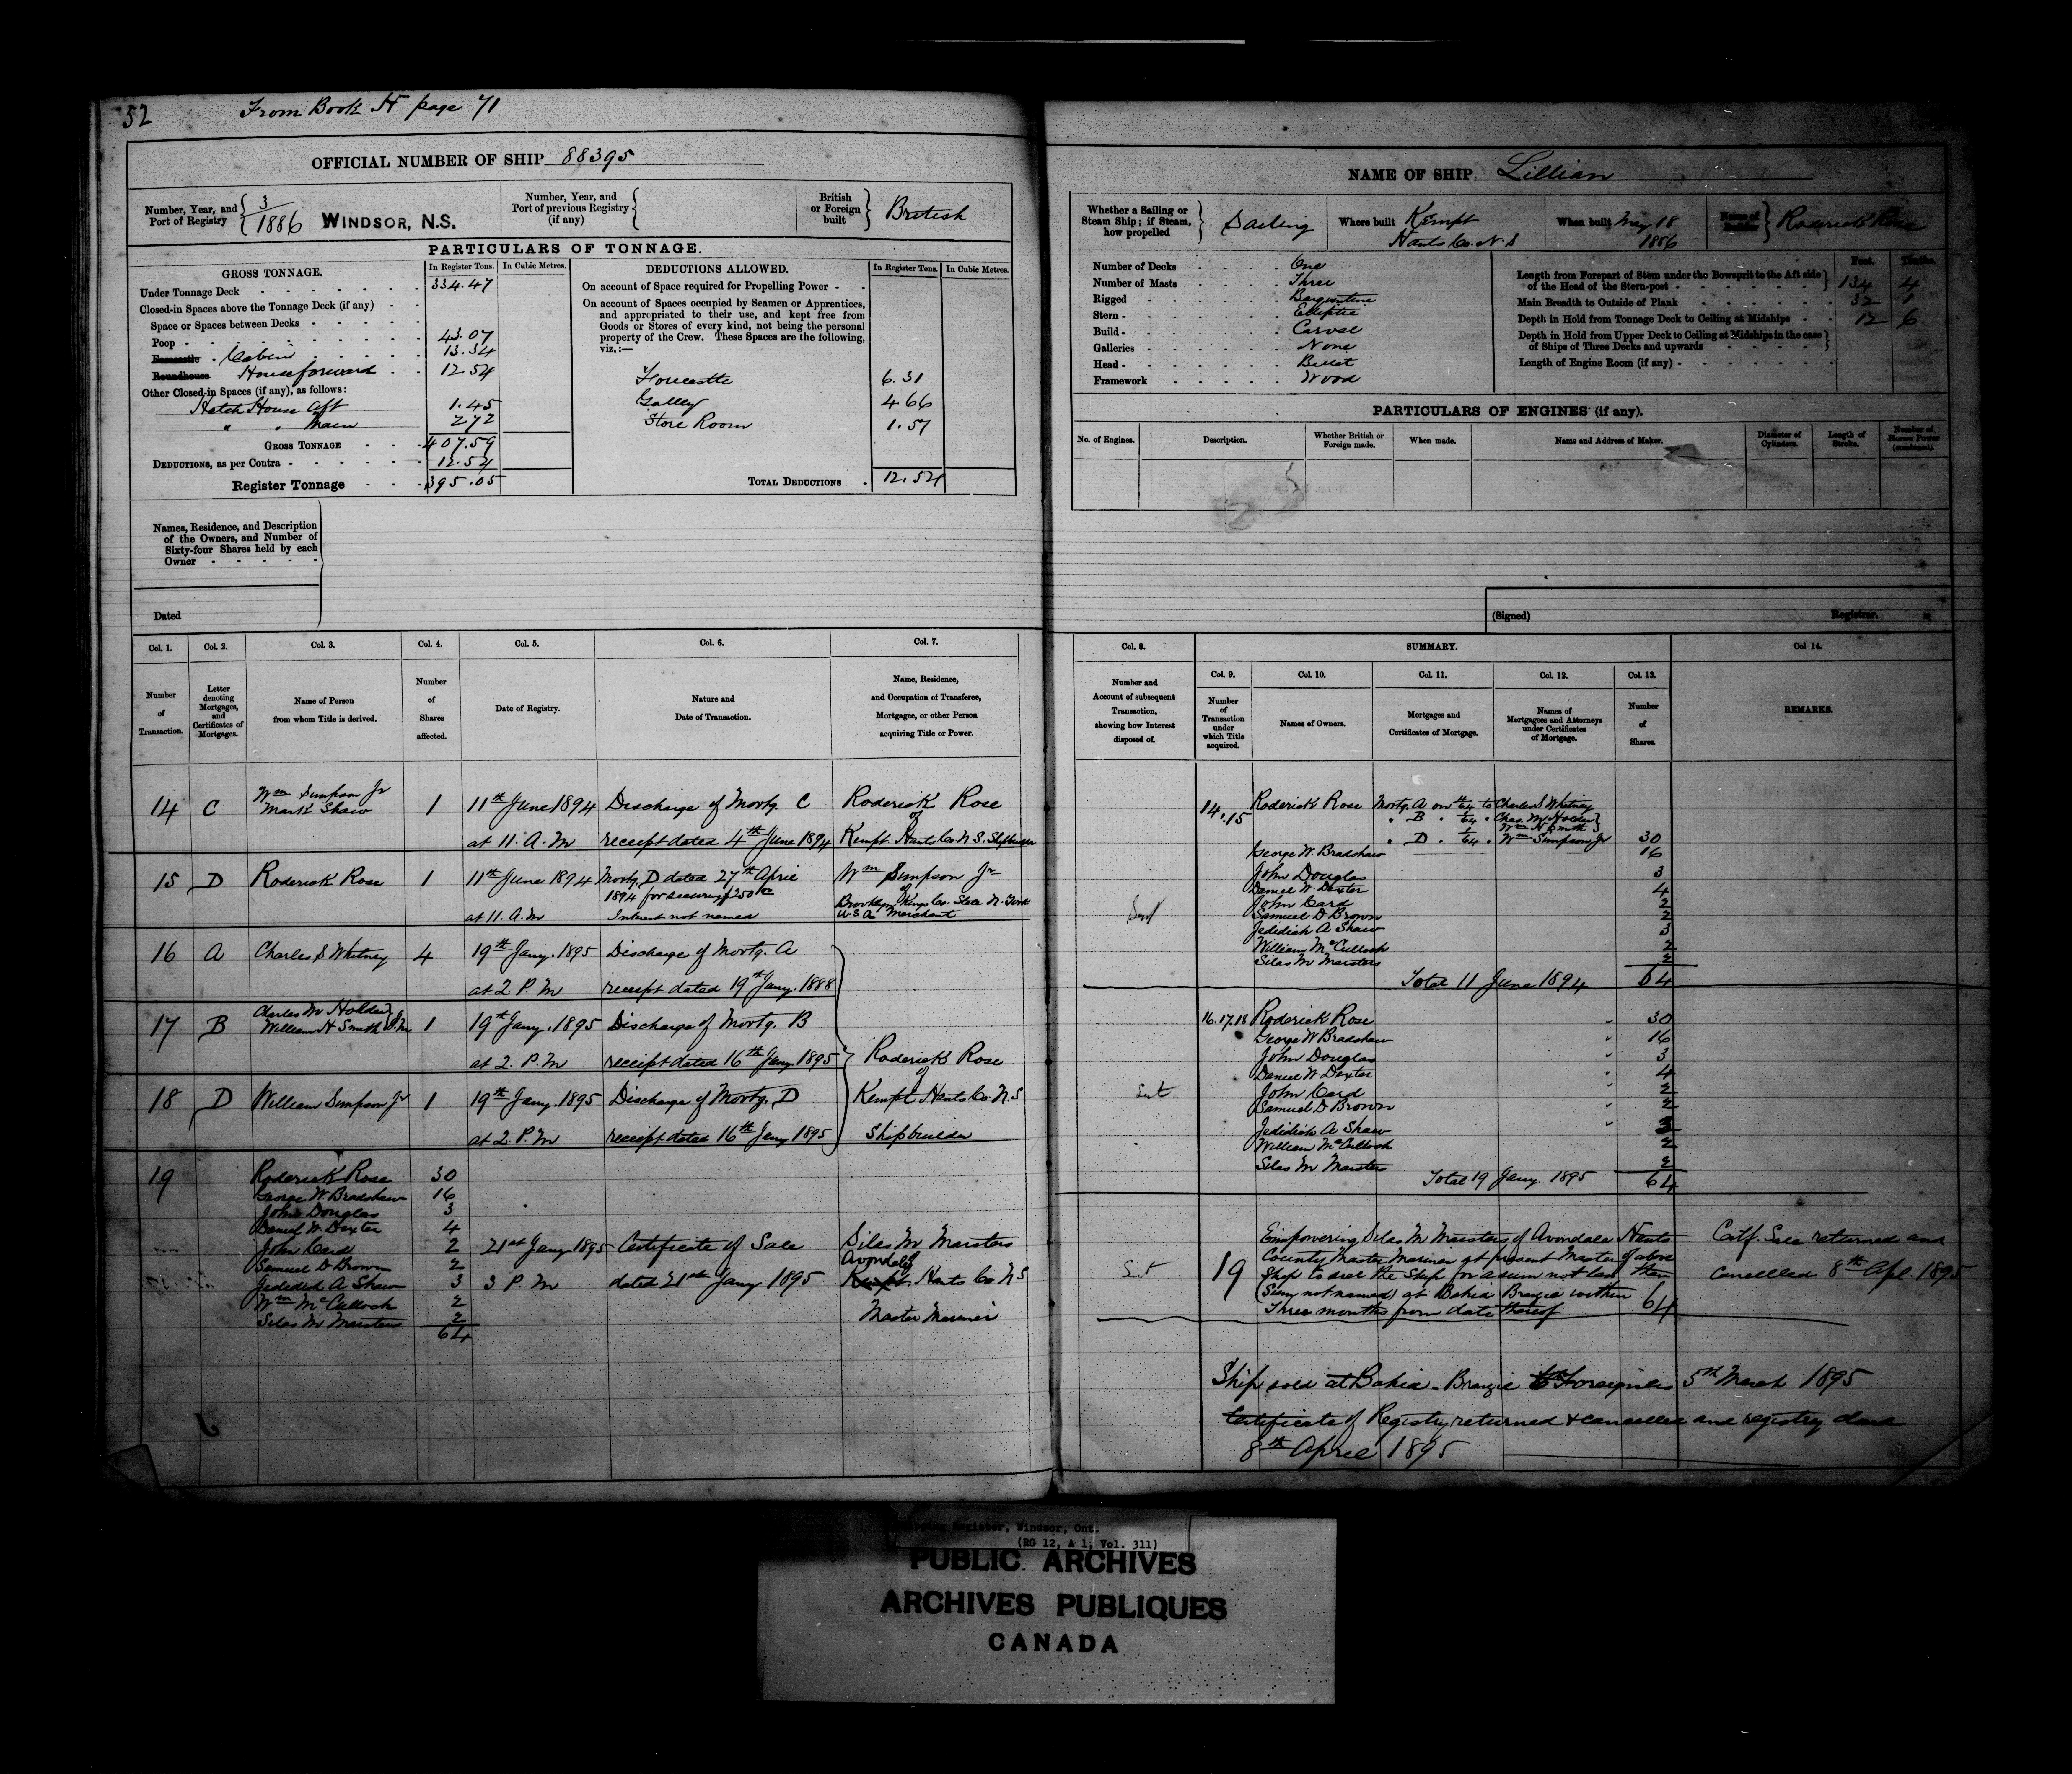 52
From Book H page 71
OFFICIAL NUMBER OF SHIP 88395
Number, Year, and Port of Registry { 3/1886 WINDSOR, N.S.
Number, Year, and Port of previous Registry (if any) {
British or Foreign built } British
PARTICULARS OF TONNAGE.
GROSS TONNAGE. In Register Tons. In Cubic Metres.
Under Tonnage Deck 334.47
Closed-in Spaces above the Tonnage Deck (if any)
Space or Spaces between Decks
Poop 43.07
Forecastle Cabin 13.34
Roundhouse House forward 12.54
Other Closed-in Spaces (if any), as follows:
Hatch House Aft 1.45
" " Main 2.72
GROSS TONNAGE 407.59
DEDUCTIONS, as per Contra 12.54
Register Tonnage 395.05
DEDUCTIONS ALLOWED. In Register Tons. In Cubic Metres.
On account of Space required for Propelling Power
On account of Spaces occupied by Seamen or Apprentices,
and appropriated to their use, and kept free from
Goods or Stores of every kind, not being the personal
property of the Crew. These Spaces are the following,
viz.:—
Forecastle 6.31
Galley 4.66
Store Room 1.57
TOTAL DEDUCTIONS 12.54
Names, Residence, and Description
of the Owners, and Number of
Sixty-four Shares held by each
Owner
Dated
Col. 1. Col. 2. Col. 3. Col. 4. Col. 5. Col. 6. Col. 7.
Number of Transaction.
Letter denoting Mortgages, and Certificates of Mortgages.
Name of Person from whom Title is derived.
Number of Shares affected.
Date of Registry.
Nature and Date of Transaction.
Name, Residence, and Occupation of Transferee, Mortgagee, or other Person acquiring Title or Power.
14 C Wm Simpson Jr Mark Shaw 1 11th June 1894 Discharge of Mortg. C Roderick Rose
of
at 11. A.M receipt dated 4th June 1894 Kempt. Hants Co N.S. Shipbuilder
15 D Roderick Rose 1 11th June 1894 Mortg. D dated 27th April Wm Simpson Jr
1894 for securing $250 of
at 11. A.M Interest not named Brooklyn Kings Co. State N. York
U.S.A Merchant
16 A Charles S Whitney 4 19th Jany. 1895 Discharge of Mortg. A
at 2 P.M receipt dated 19th Jany. 1888
17 B Charles M Holder William H Smith } J.M 1 19th Jany. 1895 Discharge of Mortg. B
at 2. P.M receipt dated 16th Jany 1895 Roderick Rose
of
18 D William Simpson Jr 1 19th Jany. 1895 Discharge of Mortg. D Kempt Hants Co. N.S
at 2. P.M receipt dated 16th Jany 1895 Shipbuilder
19 Roderick Rose 30
George W. Bradshaw 16
John Douglas 3
Daniel W. Dexter 4
John Card 2 21st Jany 1895 Certificate of Sale Silas M Marsters
Samuel D Brown 2 Avondale
Jedediah A Shaw 3 3 P.M dated 21st Jany 1895 Kempt Hants Co N S
Wm McCulloch 2
Silas M Marsters 2 Master Mariner
64
NAME OF SHIP Lillian
Whether a Sailing or Steam Ship; if Steam, how propelled } Sailing
Where built Kempt Hants Co. N.S
When built May 18 1886
Name of Builder } Roderick Rose
Number of Decks One
Number of Masts Three
Rigged Barquentine
Stern Elliptic
Build Carvel
Galleries None
Head Billet
Framework Wood
Feet. Tenths.
Length from Forepart of Stem under the Bowsprit to the Aft side of the Head of the Stern-post 134 4
Main Breadth to Outside of Plank 32 1
Depth in Hold from Tonnage Deck to Ceiling at Midships 12 6
Depth in Hold from Upper Deck to Ceiling at Midships in the case of Ships of Three Decks and upwards
Length of Engine Room (if any)
PARTICULARS OF ENGINES (if any).
No. of Engines. Description. Whether British or Foreign made. When made. Name and Address of Maker. Diameter of Cylinders. Length of Stroke. Number of Horses Power (combined).
(Signed) Registrar.
Col. 8. SUMMARY. Col 14.
Col. 9. Col. 10. Col. 11. Col. 12. Col. 13.
Number and Account of subsequent Transaction, showing how Interest disposed of.
Number of Transaction under which Title acquired.
Names of Owners.
Mortgages and Certificates of Mortgage.
Names of Mortgagees and Attorneys under Certificates of Mortgage.
Number of Shares.
REMARKS.
14.15 Roderick Rose Mortg. A on 4/64 to Charles S Whitney
" B " 1/64 " Chas. M Holder }
Wm H Smith }
" D " 1/64 " Wm Simpson Jr 30
George W. Bradshaw 16
John Douglas 3
Daniel W. Dexter 4
John Card 2
Samuel D Brown 2
Jedediah A Shaw 3
William McCulloch 2
Silas M Marsters 2
Total 11 June 1894 64
16.17.18 Roderick Rose 30
George W Bradshaw 16
John Douglas 3
Daniel W Dexter 4
John Card 2
Samuel D Brown 2
Jedidiah A Shaw 3
William McCulloch 2
Silas M Marsters 2
Total 19 Jany. 1895 64
19 Empowering Silas M Marsters of Avondale Hants
County Master Mariner at present Master of above
Ship to sell the Ship for a sum not less than
(Sum not named) at Bahia Brazil within
Three months from date thereof 64
Certf. Sale returned and
cancelled 8th Apl. 1895
Ship sold at Bahia - Brazil to Foreigners 5th March 1895
Certificate of Registry returned & cancelled and registry closed
8th April 1895
Register, Windsor, Ont.
(RG 12, A 1, Vol. 311)
PUBLIC ARCHIVES
ARCHIVES PUBLIQUES
CANADA